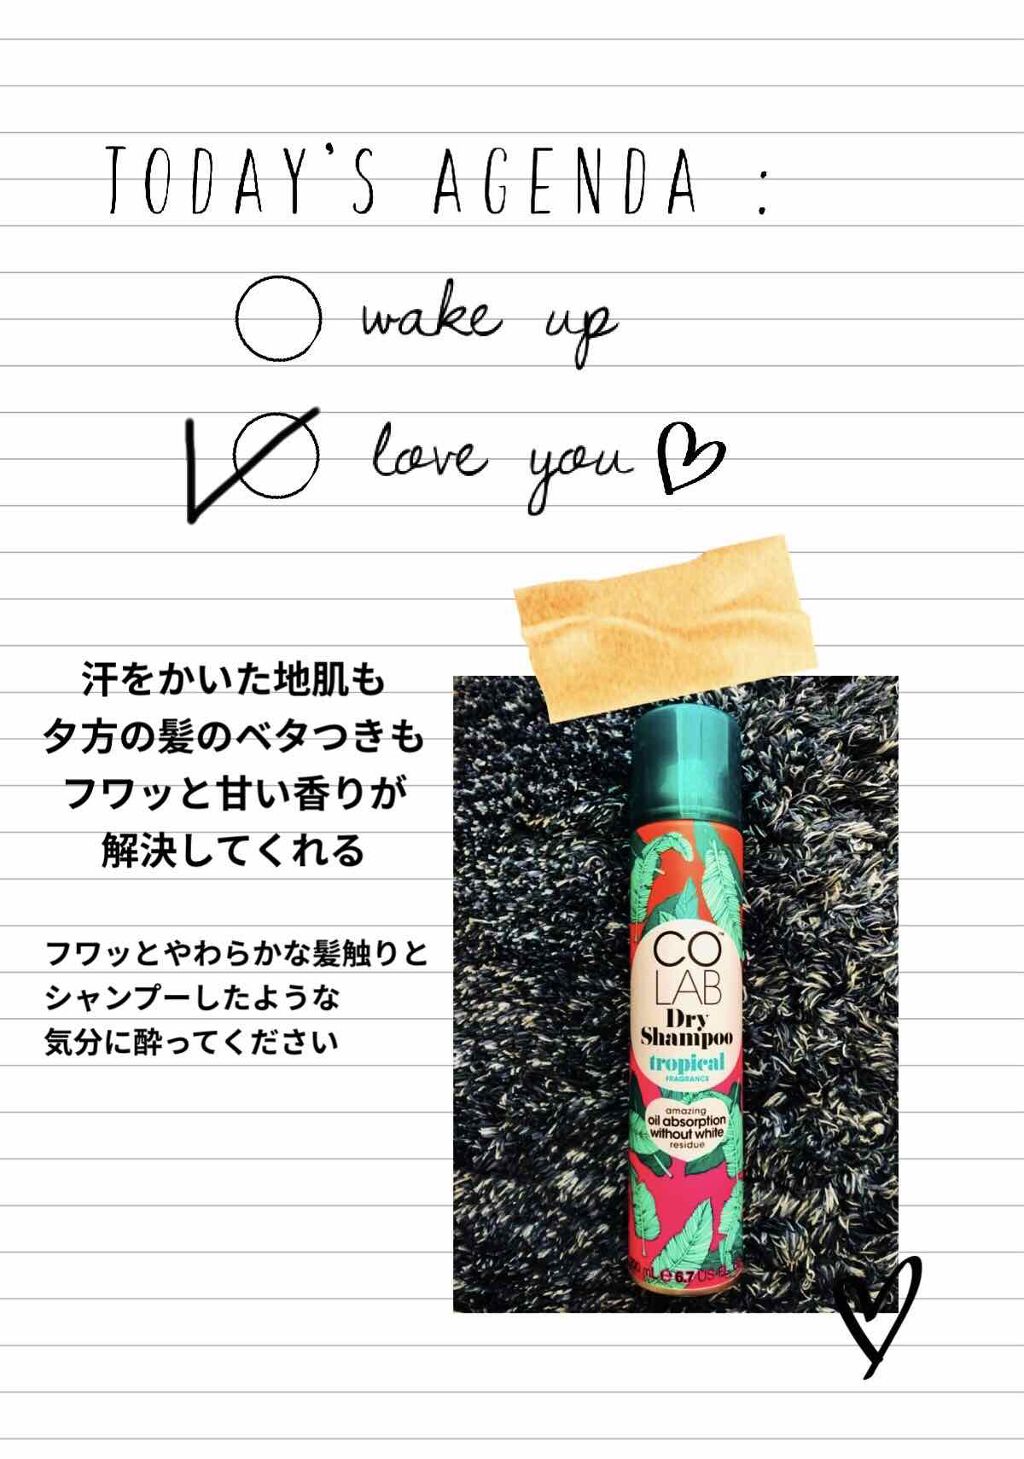 TODAY'S AGENDA :
wake up
love you
汗をかいた地肌も
夕方の髪のベタつきも
フワッと甘い香りが
解決してくれる
フワッとやわらかな髪触りと
シャンプーしたような
気分に酔ってください
CO
LAB™
Dry
Shampoo
tropical
FRAGRANCE
amazing
oil absorption
without white
residue
mL ℮ 6.7 US